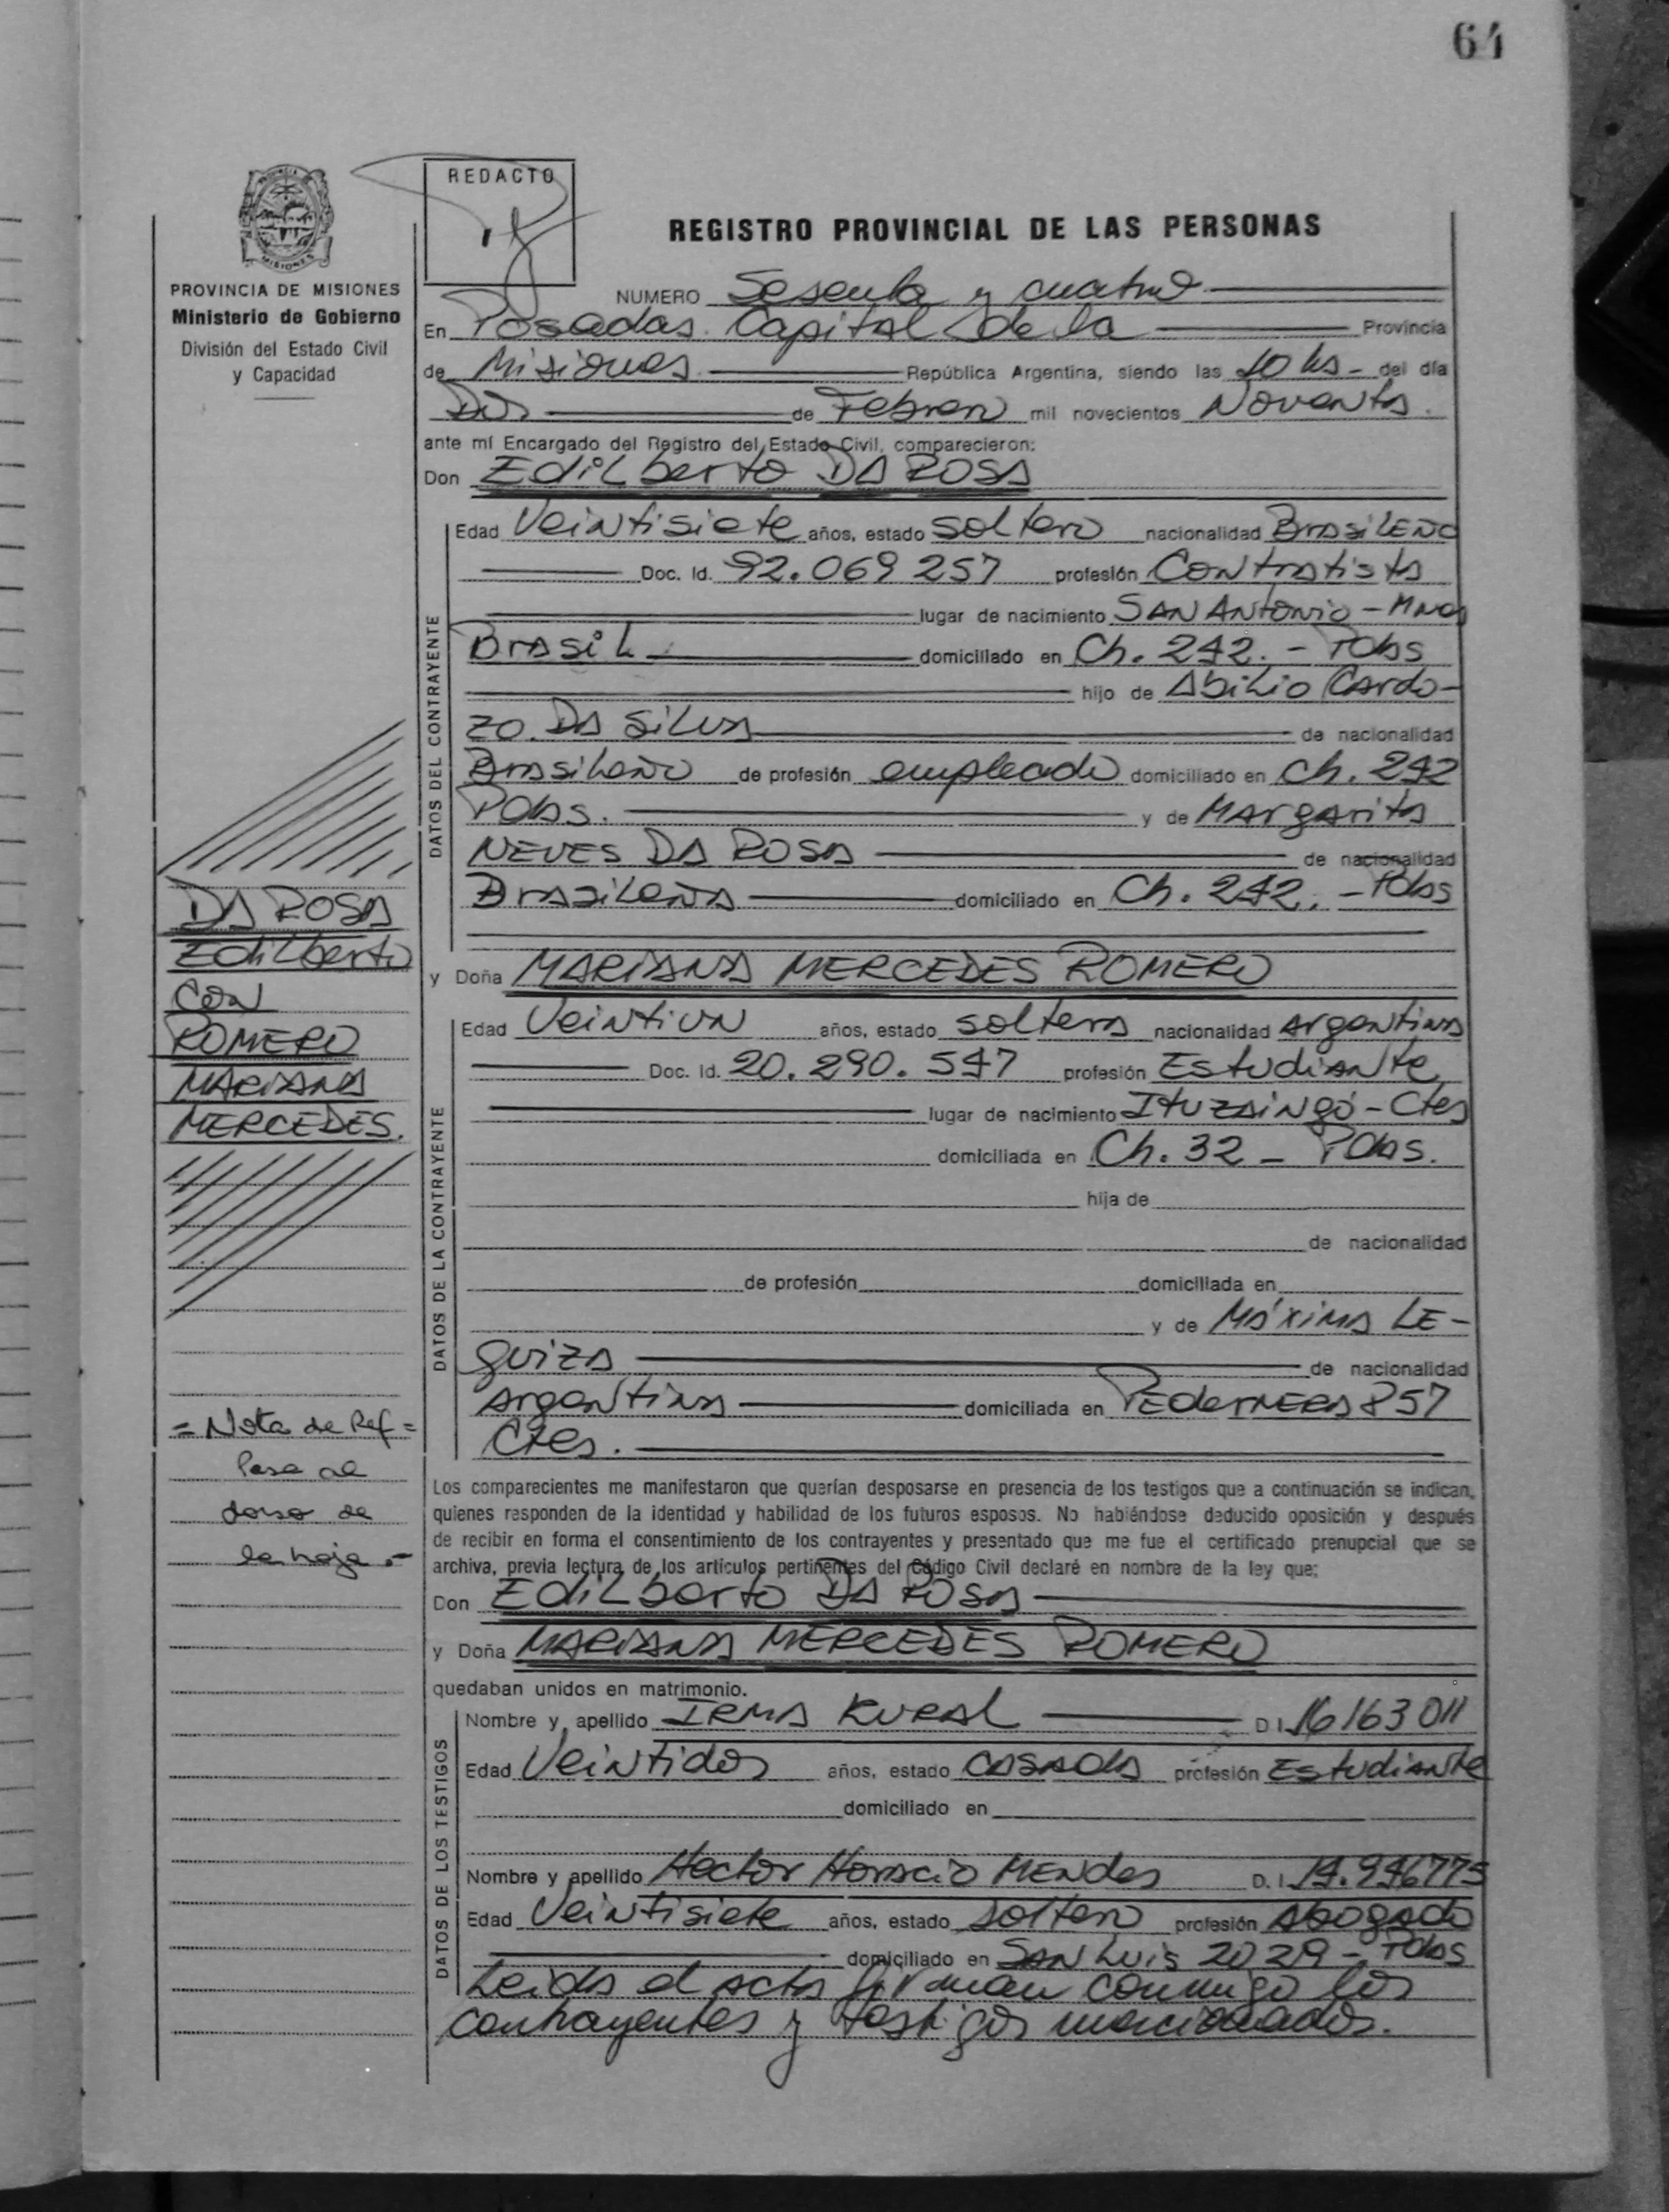 64
REDACTO
REGISTRO PROVINCIAL DE LAS PERSONAS
PROVINCIA DE MISIONES
Ministerio de Gobierno
División del Estado Civil
y Capacidad
NUMERO Sesenta y cuatro
En Posadas. Capital de la Provincia
de Misiones República Argentina, siendo las 10 hs - del día
Dos de Febrero mil novecientos Noventa.
ante mí Encargado del Registro del Estado Civil, comparecieron:
Don Edilberto DA ROSA
DATOS DEL CONTRAYENTE
Edad Veintisiete años, estado soltero nacionalidad Brasileño
Doc. Id. 92.069 257 profesión Contratista
lugar de nacimiento SAN Antonio - Mnes
Brasil domiciliado en Ch. 242. - Pdas
hijo de Abilio Cardo-
zo. DA SILVA de nacionalidad
Brasileño de profesión empleado domiciliado en Ch. 242
Pdas. y de Margarita
NEVES DA ROSA de nacionalidad
Brasileña domiciliado en Ch. 242. - Pdas
DA ROSA
Edilberto
CON
ROMERO
MARIANA
MERCEDES.
y Doña MARIANA MERCEDES ROMERO
DATOS DE LA CONTRAYENTE
Edad Veintiun años, estado soltera nacionalidad Argentina
Doc. Id. 20.290.547 profesión Estudiante
lugar de nacimiento Ituzaingó - Ctes
domiciliada en Ch. 32 - Pdas.
hija de
de nacionalidad
de profesión domiciliada en
y de Máxima LE-
guiza de nacionalidad
Argentina domiciliada en Pedernera 857
Ctes.
= Nota de Ref =
Pasa al
dorso de
la hoja.-
Los comparecientes me manifestaron que querían desposarse en presencia de los testigos que a continuación se indican,
quienes responden de la identidad y habilidad de los futuros esposos. No habiéndose deducido oposición y después
de recibir en forma el consentimiento de los contrayentes y presentado que me fue el certificado prenupcial que se
archiva, previa lectura de los artículos pertinentes del Código Civil declaré en nombre de la ley que:
Don Edilberto DA ROSA
y Doña MARIANA MERCEDES ROMERO
quedaban unidos en matrimonio.
DATOS DE LOS TESTIGOS
Nombre y apellido IRMA KURAL D I. 16163011
Edad Veintidos años, estado casada profesión Estudiante
domiciliado en
Nombre y apellido Hector Horacio Mendes D. I. 14.946775
Edad Veintisiete años, estado soltero profesión Abogado
domiciliado en San Luis 2029 - Pdas
Leida el acta firman conmigo los
contrayentes y testigos mencionados.